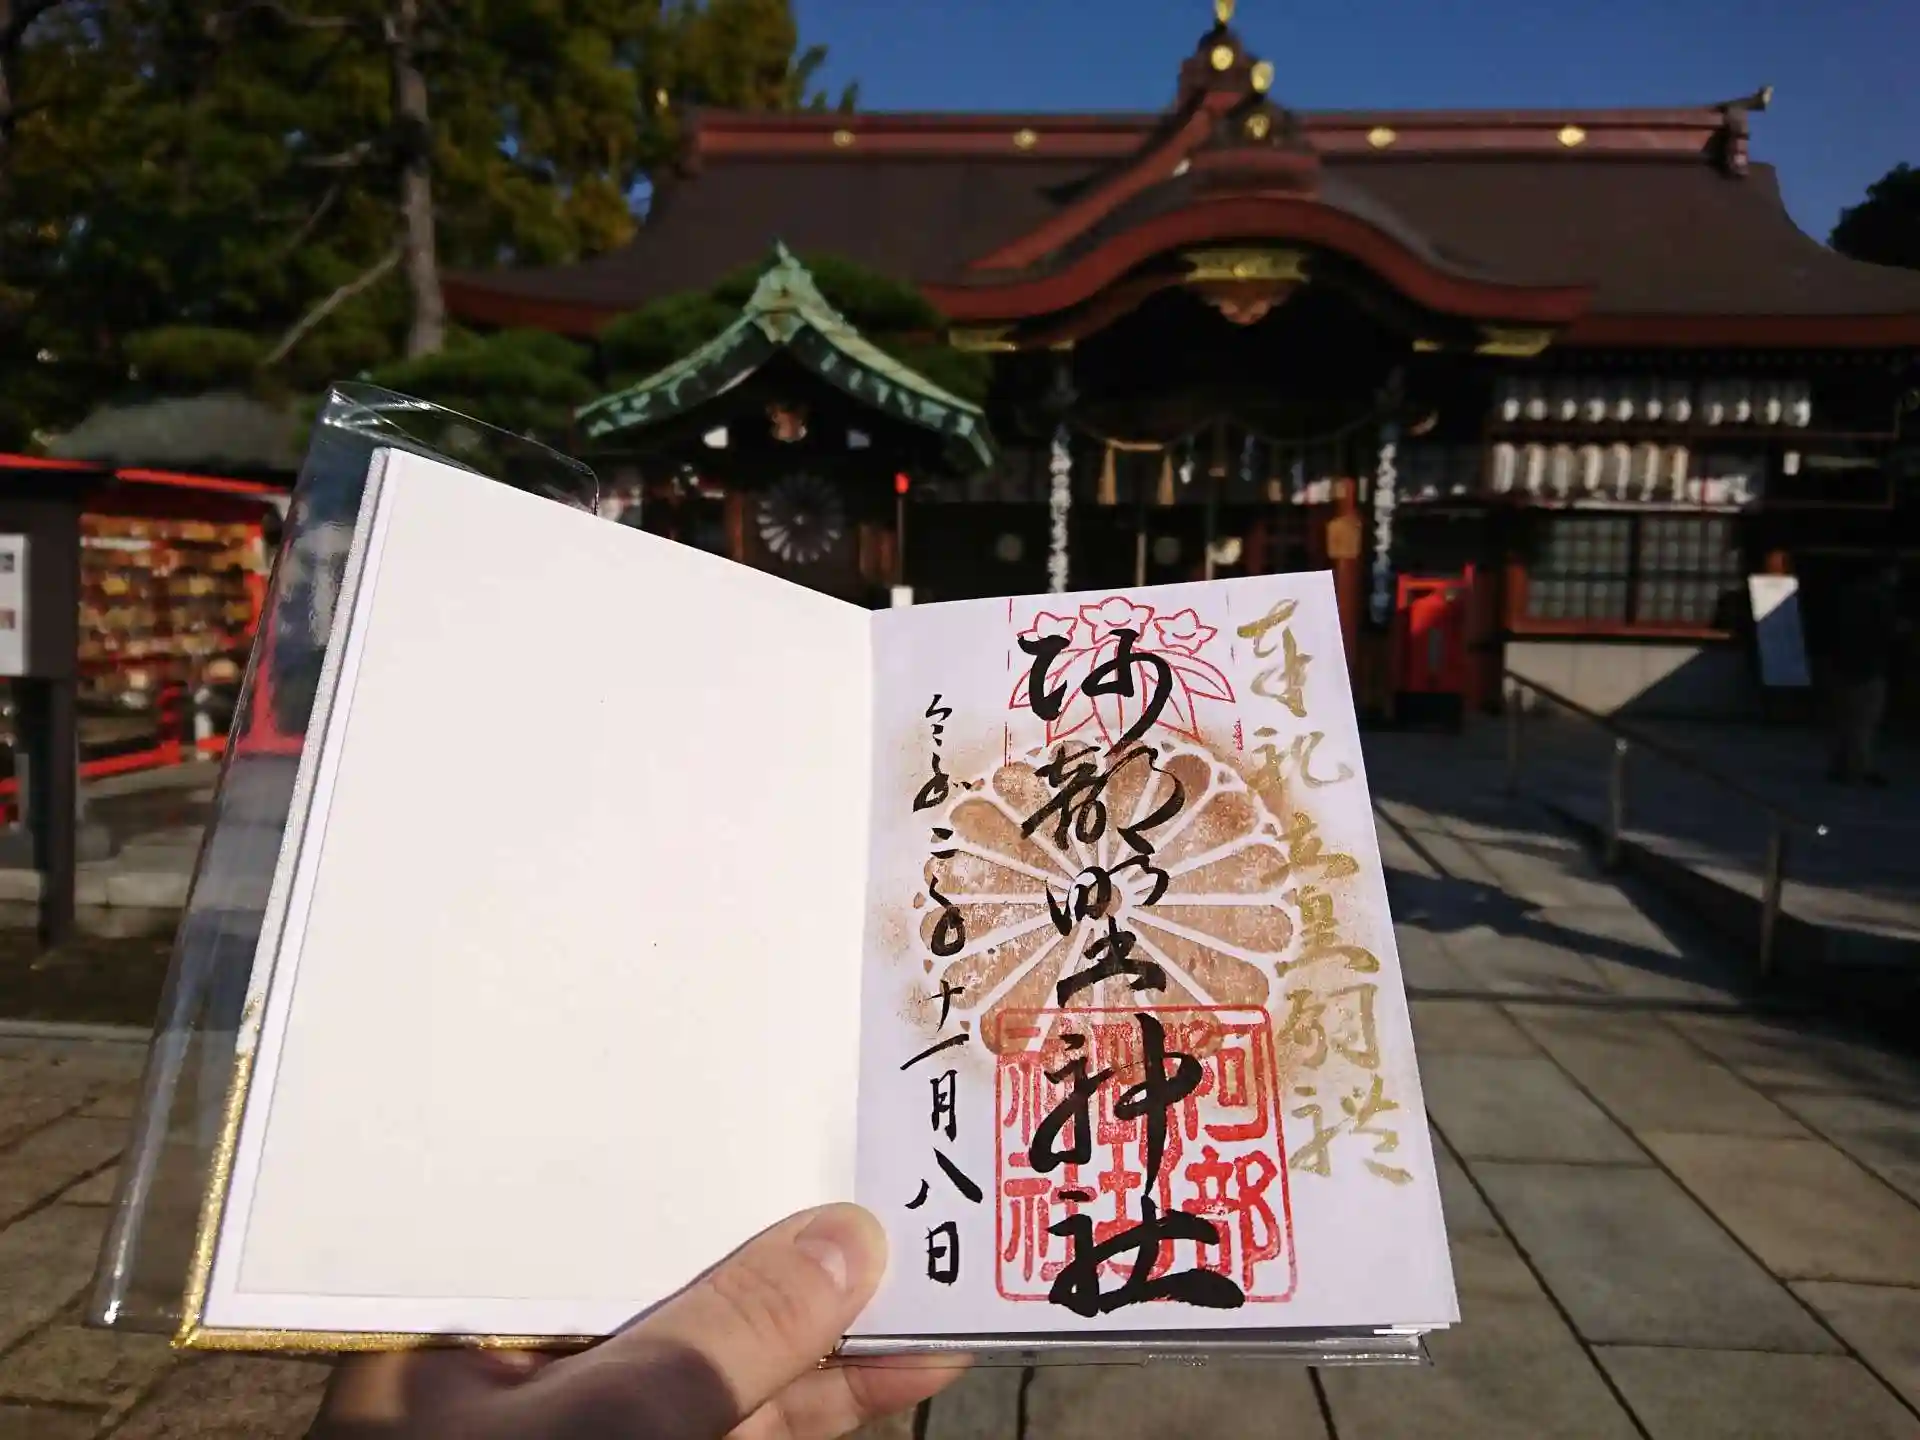 奉祝立皇嗣禮
阿部野神社
令和二年十一月八日
阿部
野
神社